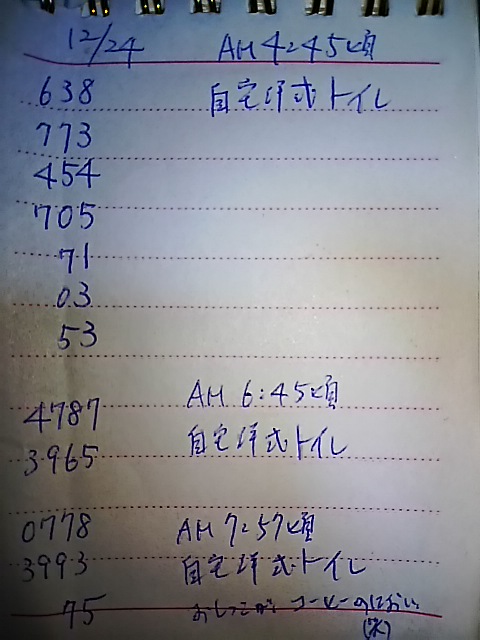 12/24 AM 4:45頃
638 自宅洋式トイレ
773
454
705
71
03
53
AM 6:45頃
4787
自宅洋式トイレ
3965
0778 AM 7:57頃
3993 自宅洋式トイレ
75 おしっこがコーヒーのにおい